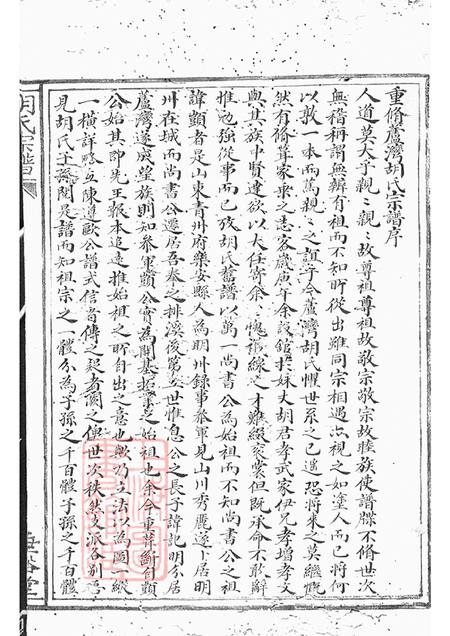 重脩蘆灣胡氏宗譜序
人道莫大于親〻親〻故尊祖尊祖故敬宗敬宗故睦族使譜牒不脩世次
無稽稱謂無辨有祖而不知所從出雖同宗相遇亦視之如塗人而已將何
以敦一本而篤親〻之誼乎今蘆灣胡氏懼世系之已遠恐將來之莫繼慨
然有脩葺家乘之志客歲庚午余設舘于妹丈胡君孝武家伊兄孝增孝文
與其族中賢達欲以大任寄余〻愧非線之才難綴衮裳但既承命不敢辭
惟勉強從事而已攷胡氏舊譜以萬一尚書公為始祖而不知尚書公之祖
諱顥者是山東青州府樂安縣人為明州錄事參軍見山川秀麗遂卜居明
州在城而尚書公遷居吾奉之排溪後第五世惟息公之長子諱記明分居
蘆灣遂成望族則知參軍顥公實為開基拓業之始祖也余今重詳斷自顥
公始其即先王報本追遠推始祖之所自出之意也歟乃立法以為圖一縱
一橫詳畧並陳遵歐公譜式信者傳之疑者闕之俾世次秩然支派各別吾
見胡氏子孫閱是譜而知祖宗之一體分為子孫之千百體子孫之千百體
胡氏宗譜